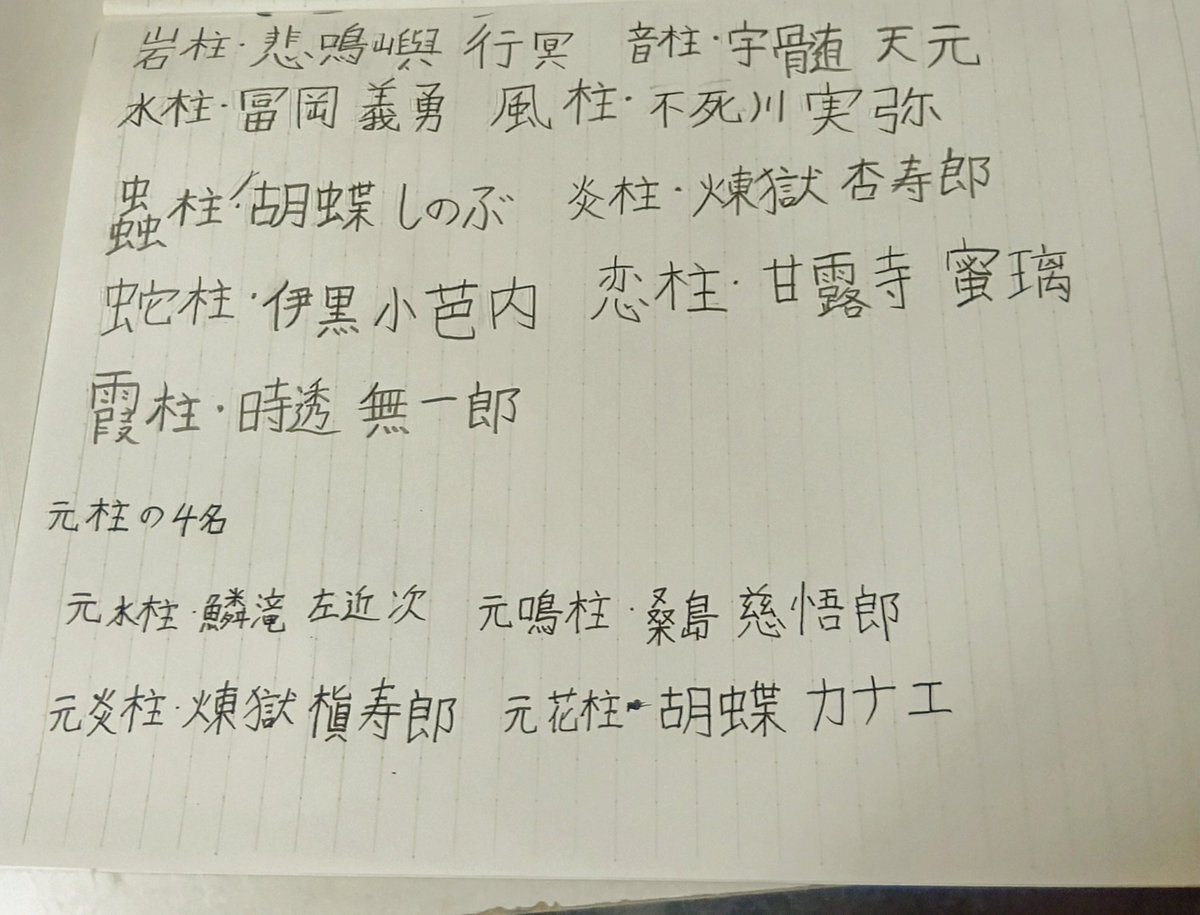 岩柱・悲鳴嶼 行冥　音柱・宇髄 天元
水柱・冨岡 義勇　風柱・不死川 実弥
蟲柱・胡蝶 しのぶ　炎柱・煉獄 杏寿郎
蛇柱・伊黒 小芭内　恋柱・甘露寺 蜜璃
霞柱・時透 無一郎
元柱の4名
元水柱・鱗滝 左近次　元鳴柱・桑島 慈悟郎
元炎柱・煉獄 槇寿郎　元花柱・胡蝶 カナエ